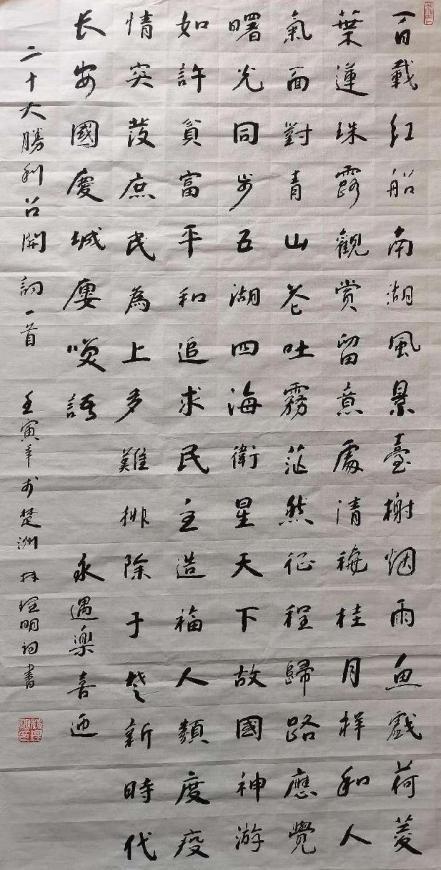 百載红船南湖風景臺榭烟雨魚戲荷菱
葉蓮珠露觀賞留意處清 桂月祥和人
氣面對青山花吐霧茫然征程歸路應覺
曙光同步五湖四海衛星天下故國神游
如許貧富平和追求民主造福人類度疫
情突發庶民為上多難排除于 新時代
长安國慶城 喚語永遇樂喜迎
二十大勝利召開詞一首 壬寅年于楚洲林 明詞書